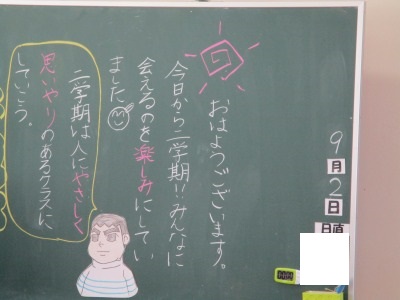 9月2日
日直
おはようございます。
今日から二学期!!みんなに
会えるのを楽しみにしてい
ました
二学期は人にやさしく
思いやりのあるクラスに
していこう。